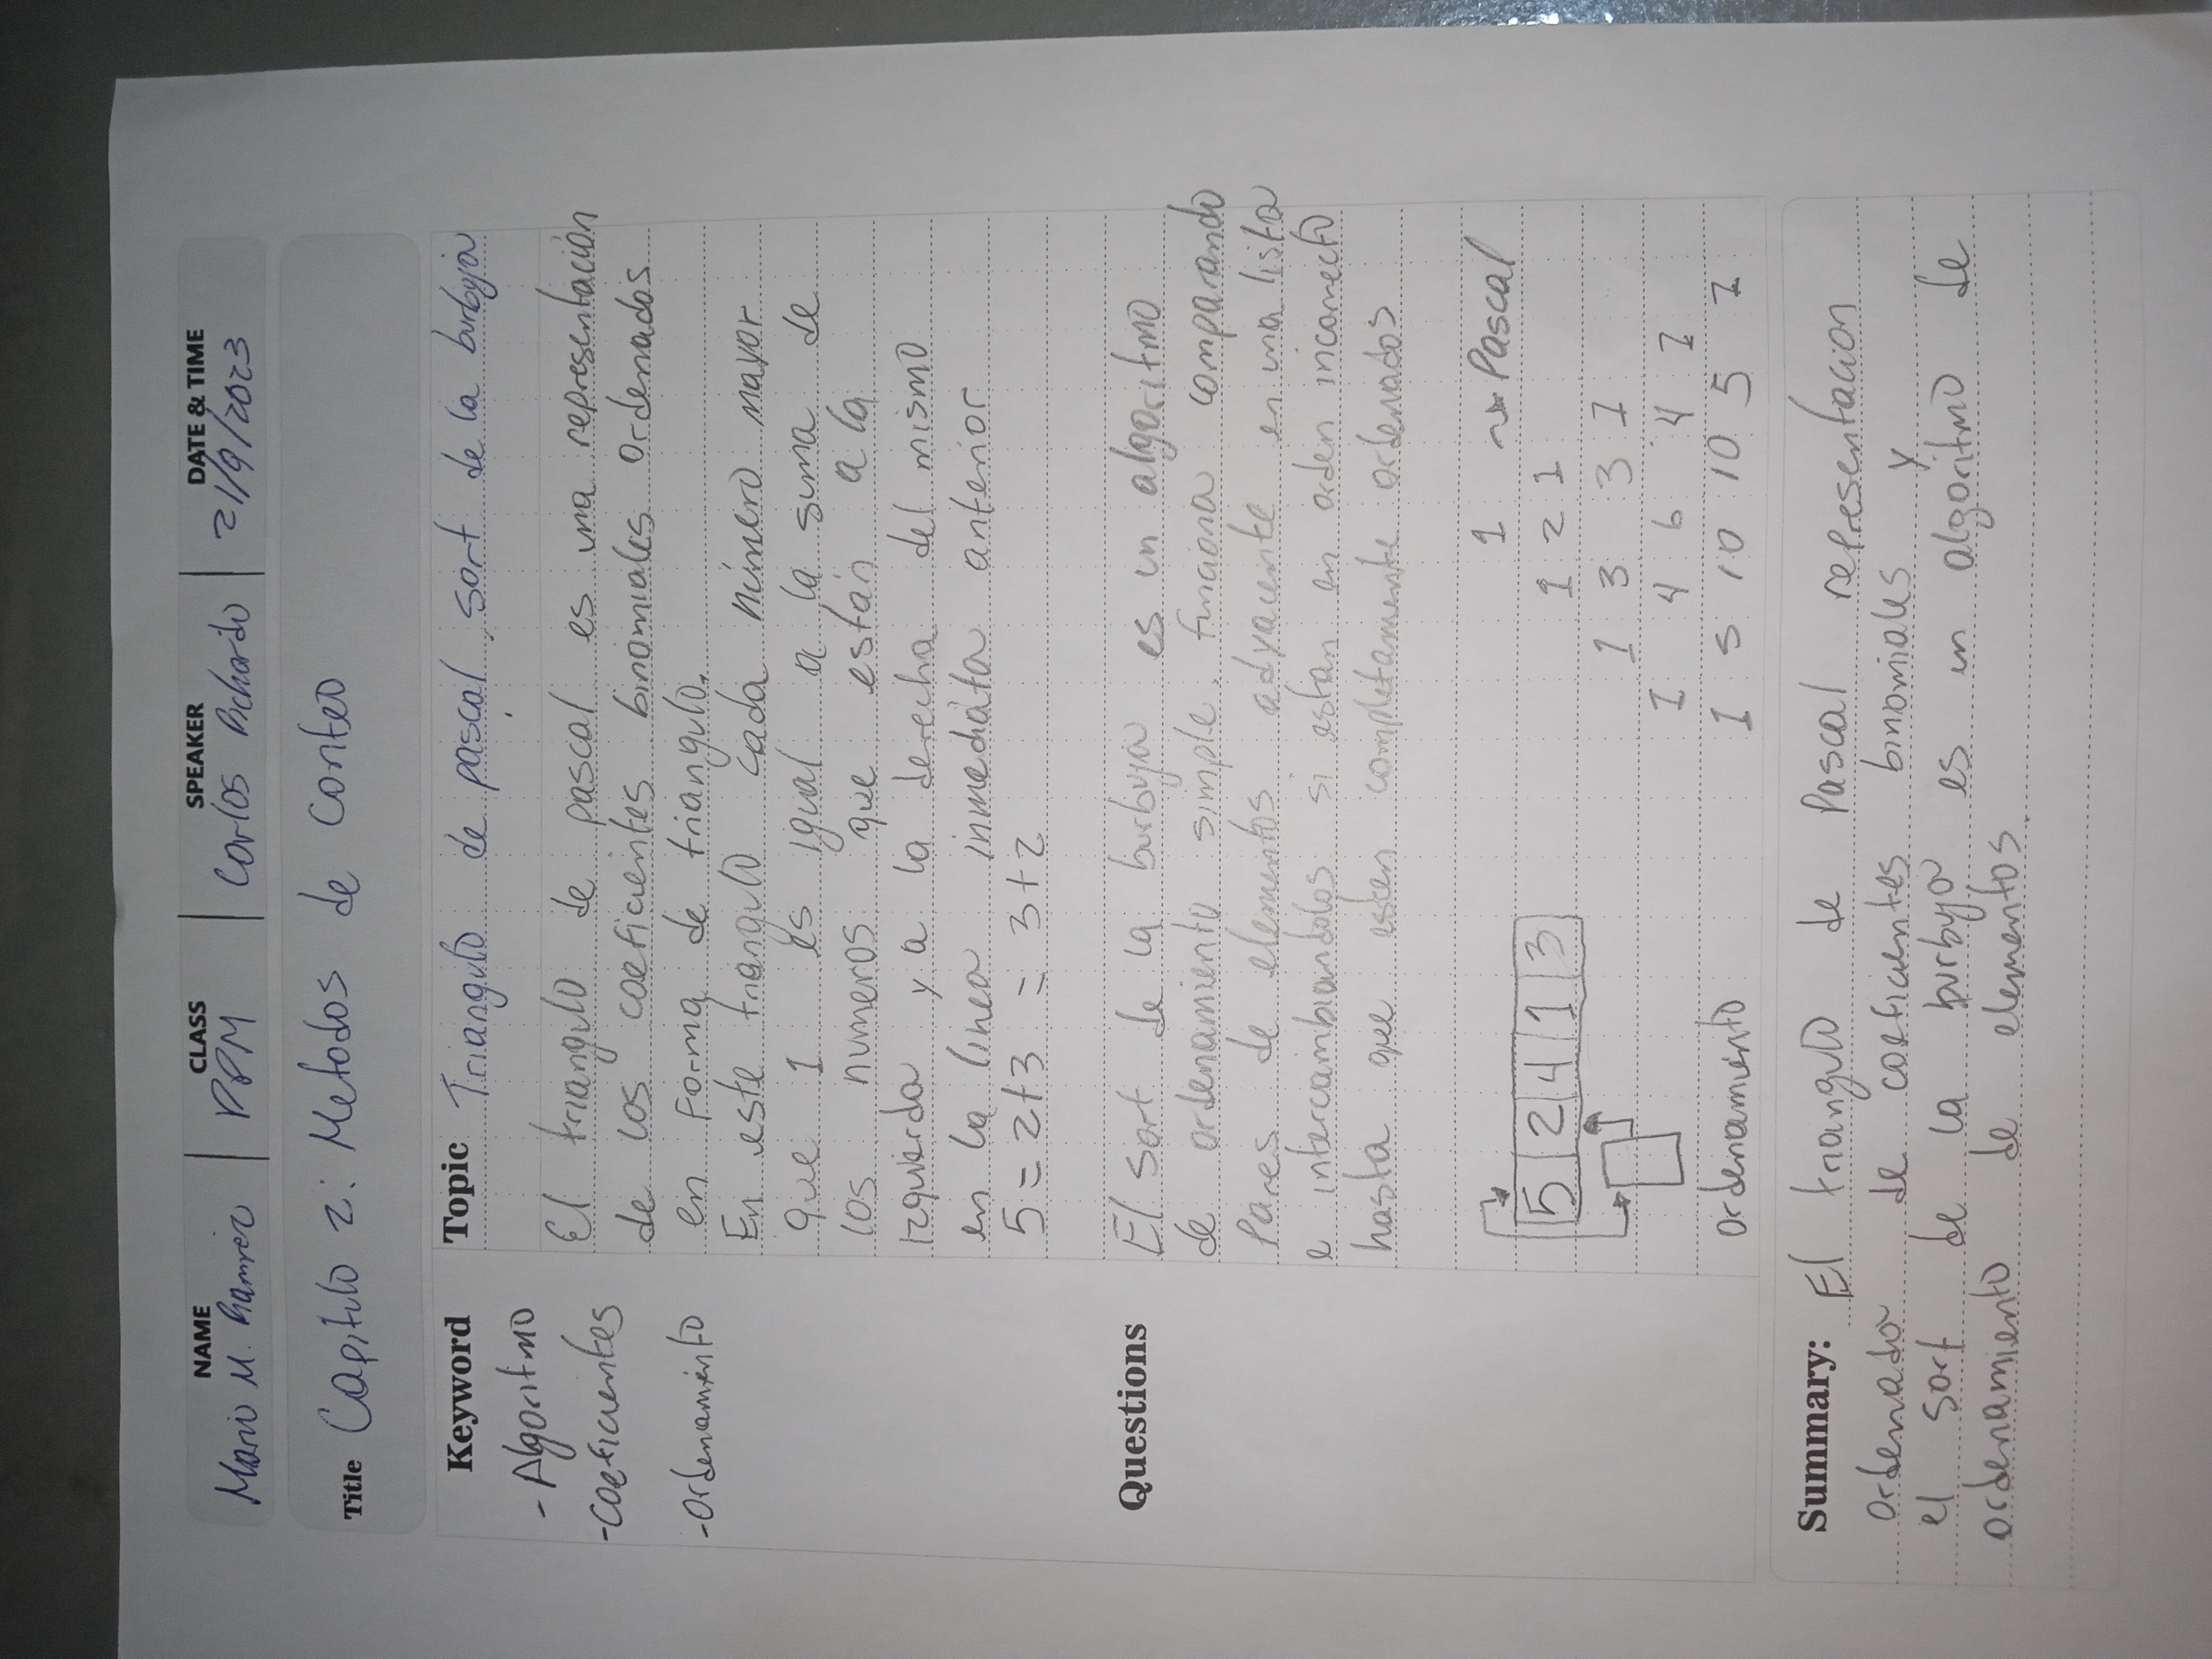 NAME CLASS SPEAKER DATE & TIME
Mario M. Ramirez PPM Carlos Pichardo 21/9/2023
Title Capitulo 2: Metodos de Conteo
Keyword
- Algoritmo
- Coeficientes
- Ordenamiento
Topic Triangulo de pascal, sort de la burbuja
El triangulo de pascal es una representación
de los coeficientes binomiales ordenados
en Forma de triangulo.
En este triangulo cada número mayor
que 1 es igual a la suma de
los numeros que están a la
izquierda y a la derecha del mismo
en la linea inmediata anterior
5 = 2+3 = 3+2
Questions
El sort de la burbuja es un algoritmo
de ordenamiento simple. Funciona comparando
Pares de elementos adyacente en una lista
e intercambiandolos si estan en orden incorrecto
hasta que esten completamente ordenados
5 2 4 1 3
Ordenamiento
1 Pascal
1 2 1
1 3 3 1
1 4 6 4 1
1 5 10 10 5 1
Summary: El triangulo de Pascal representacion
Ordenada de coeficientes binomiales y
el sort de la burbuja es un algoritmo de
ordenamiento de elementos.